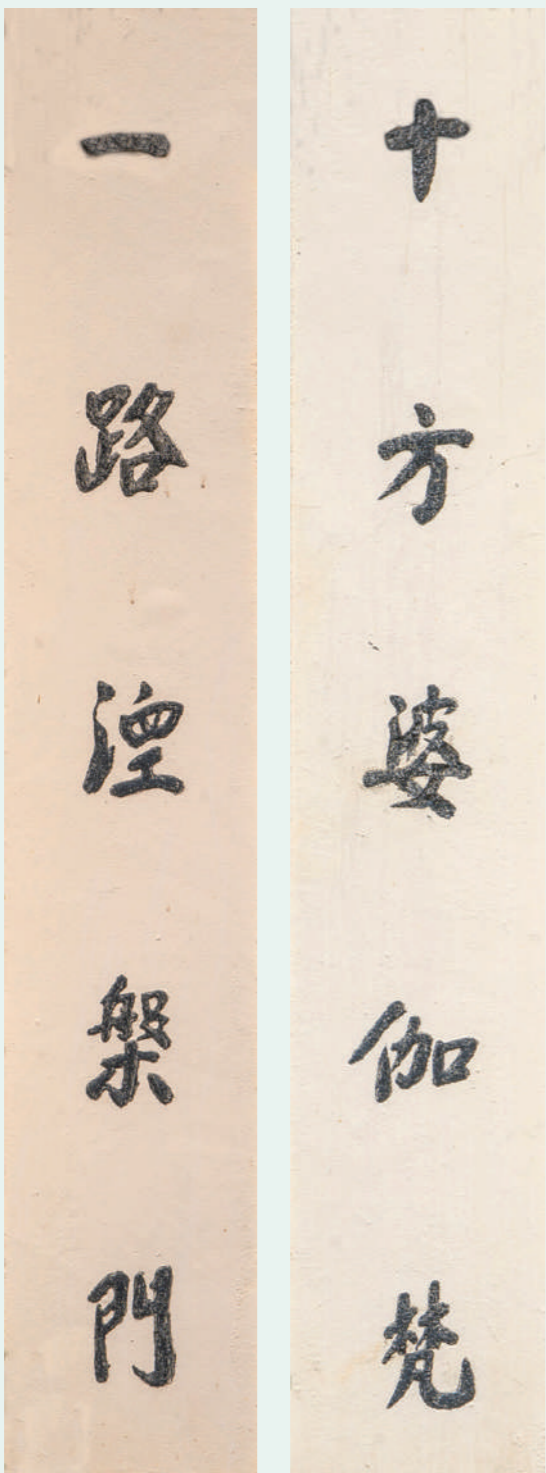 十方婆伽梵
一路涅槃門